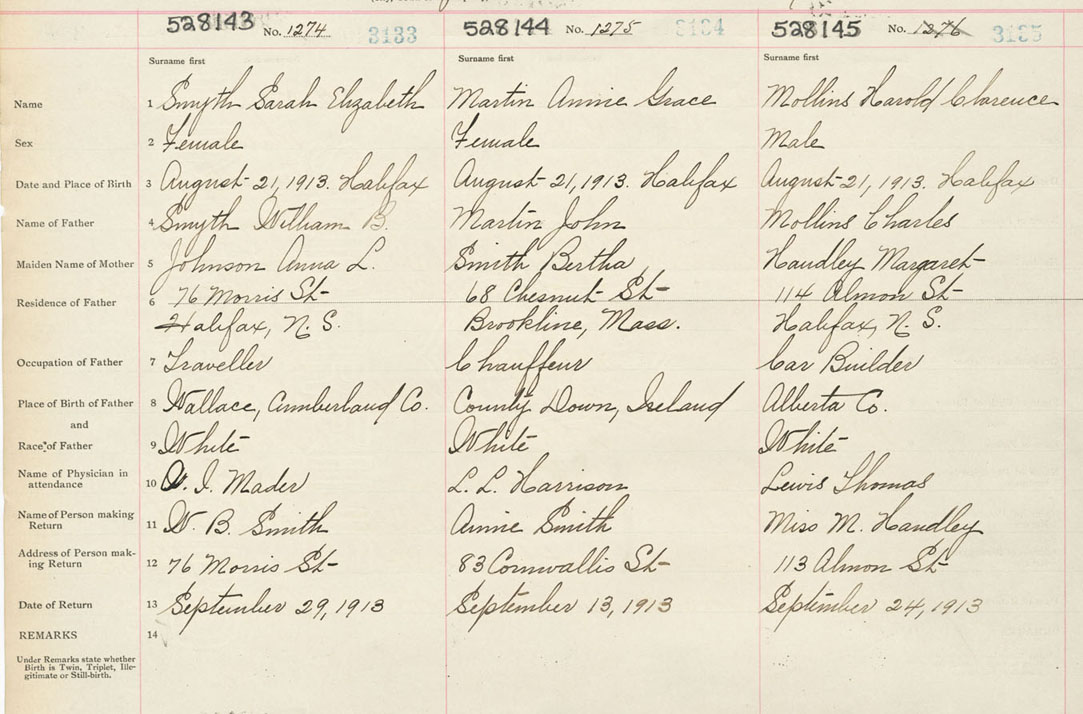 528143 No. 1274 3133 528144 No. 1275 3134 528145 No. 1276 3135
Surname first Surname first Surname first
Name 1 Smyth Sarah Elizabeth Martin Annie Grace Mollins Harold Clarence
Sex 2 Female Female Male
Date and Place of Birth 3 August 21, 1913. Halifax August 21, 1913. Halifax August 21, 1913. Halifax
Name of Father 4 Smyth William B. Martin John Mollins Charles
Maiden Name of Mother 5 Johnson Anna L. Smith Bertha Handley Margaret
Residence of Father 6 76 Morris St 68 Chesnut St 114 Almon St
Halifax, N. S. Brookline, Mass. Halifax, N. S.
Occupation of Father 7 Traveller Chauffeur Car Builder
Place of Birth of Father 8 Wallace, Cumberland Co. County Down, Ireland Alberta Co.
and
Race of Father 9 White White White
Name of Physician in
attendance 10 I. Mader L. L. Harrison Lewis Thomas
Name of Person making
Return 11 W. B. Smith Annie Smith Miss M. Handley
Address of Person mak-
ing Return 12 76 Morris St 83 Cornwallis St 113 Almon St
Date of Return 13 September 29, 1913 September 13, 1913 September 24, 1913
REMARKS 14
Under Remarks state whether
Birth is Twin, Triplet, Ille-
gitimate or Still-birth.